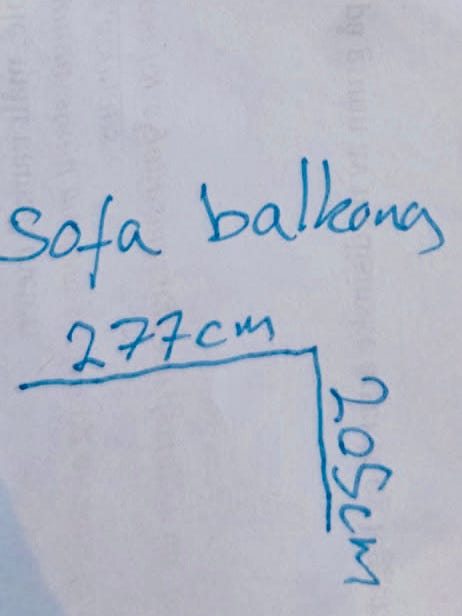 Sofa balkong
277cm
205cm